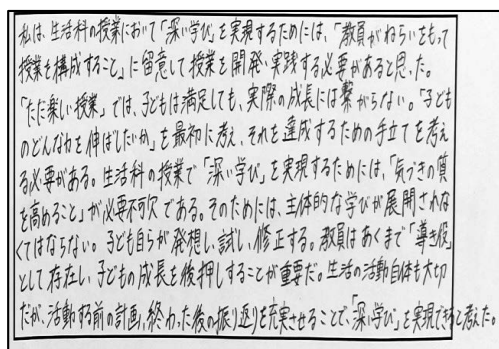 私は、生活科の授業において「深い学び」を実現するためには、「教員がねらいをもって
授業を構成すること」に留意して授業を開発、実践する必要があると思った。
「ただ楽しい授業」では、子どもは満足しても、実際の成長には繋がらない。「子ども
のどんな力を伸ばしたいか」を最初に考え、それを達成するための手立てを考え
る必要がある。生活科の授業で「深い学び」を実現するためには、「気づきの質
を高めること」が必要不可欠である。そのためには、主体的な学びが展開されな
くてはならない。子ども自らが発想し、試し、修正する。教員はあくまで「導き役」
として存在し、子どもの成長を後押しすることが重要だ。生活の活動自体も大切
だが、活動する前の計画、終わった後の振り返りを充実させることで、「深い学び」を実現できると考えた。